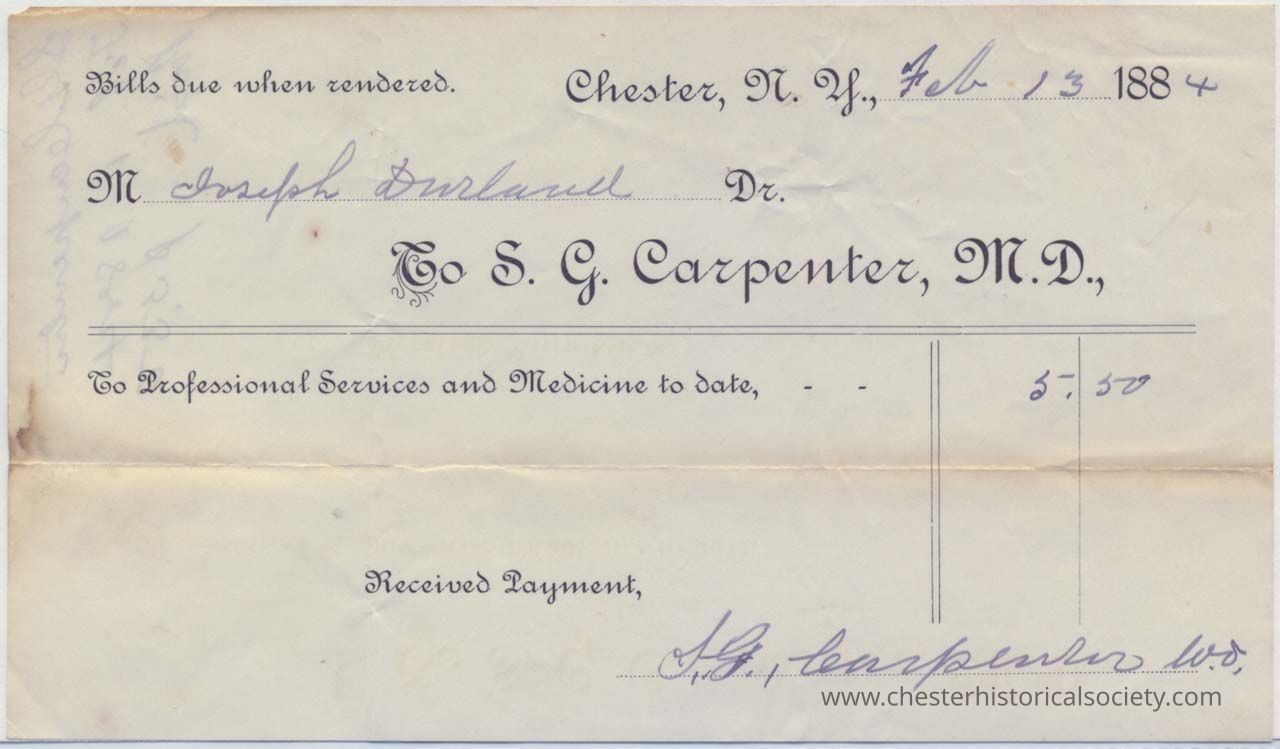 Bills due when rendered. Chester, N. Y., Feb 13 1884
M Joseph Durland Dr.
To S. G. Carpenter, M.D.,
To Professional Services and Medicine to date, - - 5. 50
Received Payment,
S. G. Carpenter M.D.
www.chesterhistoricalsociety.com